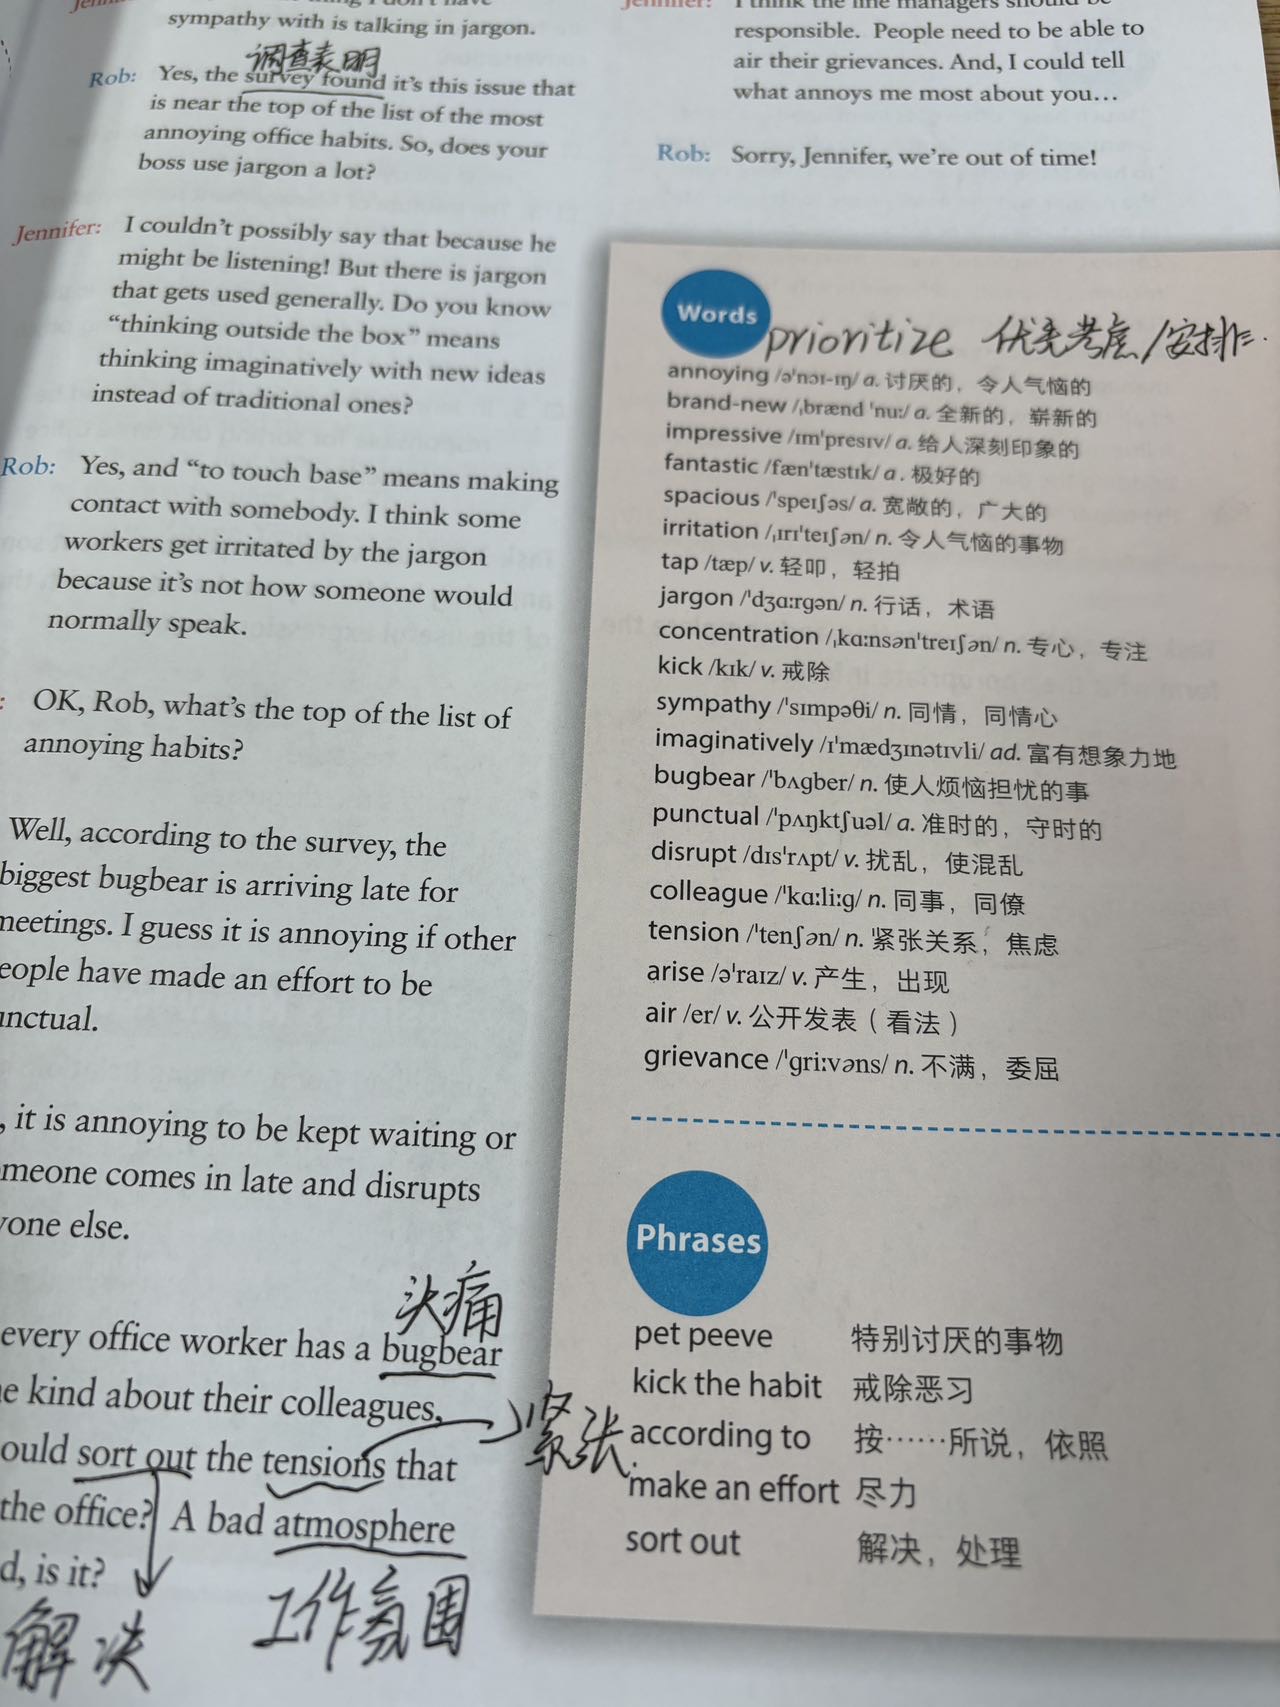 sympathy with is talking in jargon.
调查表明
Rob: Yes, the survey found it's this issue that
is near the top of the list of the most
annoying office habits. So, does your
boss use jargon a lot?
Jennifer: I couldn't possibly say that because he
might be listening! But there is jargon
that gets used generally. Do you know
“thinking outside the box” means
thinking imaginatively with new ideas
instead of traditional ones?
Rob: Yes, and “to touch base” means making
contact with somebody. I think some
workers get irritated by the jargon
because it's not how someone would
normally speak.
: OK, Rob, what's the top of the list of
annoying habits?
Well, according to the survey, the
biggest bugbear is arriving late for
meetings. I guess it is annoying if other
eople have made an effort to be
nctual.
, it is annoying to be kept waiting or
meone comes in late and disrupts
yone else.
头痛
every office worker has a bugbear
e kind about their colleagues,
紧张
ould sort out the tensions that
the office? A bad atmosphere
d, is it?
解决
工作氛围
Jennifer: I think the line managers should be
responsible. People need to be able to
air their grievances. And, I could tell
what annoys me most about you…
Rob: Sorry, Jennifer, we're out of time!
Words
prioritize 优先考虑/安排
annoying /ə'nɔɪ-ɪŋ/ a. 讨厌的，令人气恼的
brand-new /ˌbrænd 'nuː/ a. 全新的，崭新的
impressive /ɪm'presɪv/ a. 给人深刻印象的
fantastic /fæn'tæstɪk/ a. 极好的
spacious /'speɪʃəs/ a. 宽敞的，广大的
irritation /ˌɪrɪ'teɪʃən/ n. 令人气恼的事物
tap /tæp/ v. 轻叩，轻拍
jargon /'dʒɑːrgən/ n. 行话，术语
concentration /ˌkɑːnsən'treɪʃən/ n. 专心，专注
kick /kɪk/ v. 戒除
sympathy /'sɪmpəθi/ n. 同情，同情心
imaginatively /ɪ'mædʒɪnətɪvli/ ad. 富有想象力地
bugbear /'bʌgber/ n. 使人烦恼担忧的事
punctual /'pʌŋktʃuəl/ a. 准时的，守时的
disrupt /dɪs'rʌpt/ v. 扰乱，使混乱
colleague /'kɑːliːg/ n. 同事，同僚
tension /'tenʃən/ n. 紧张关系，焦虑
arise /ə'raɪz/ v. 产生，出现
air /er/ v. 公开发表（看法）
grievance /'griːvəns/ n. 不满，委屈
Phrases
pet peeve 特别讨厌的事物
kick the habit 戒除恶习
according to 按……所说，依照
make an effort 尽力
sort out 解决，处理